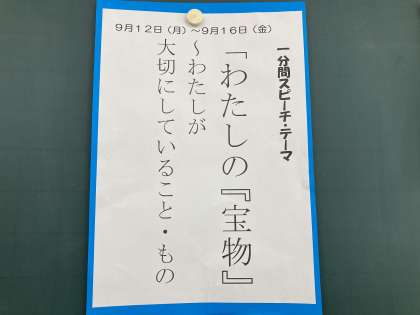 ９月１２日（月）～９月１６日（金）
一分間スピーチ・テーマ
「わたしの『宝物』
～わたしが
大切にしていること・もの